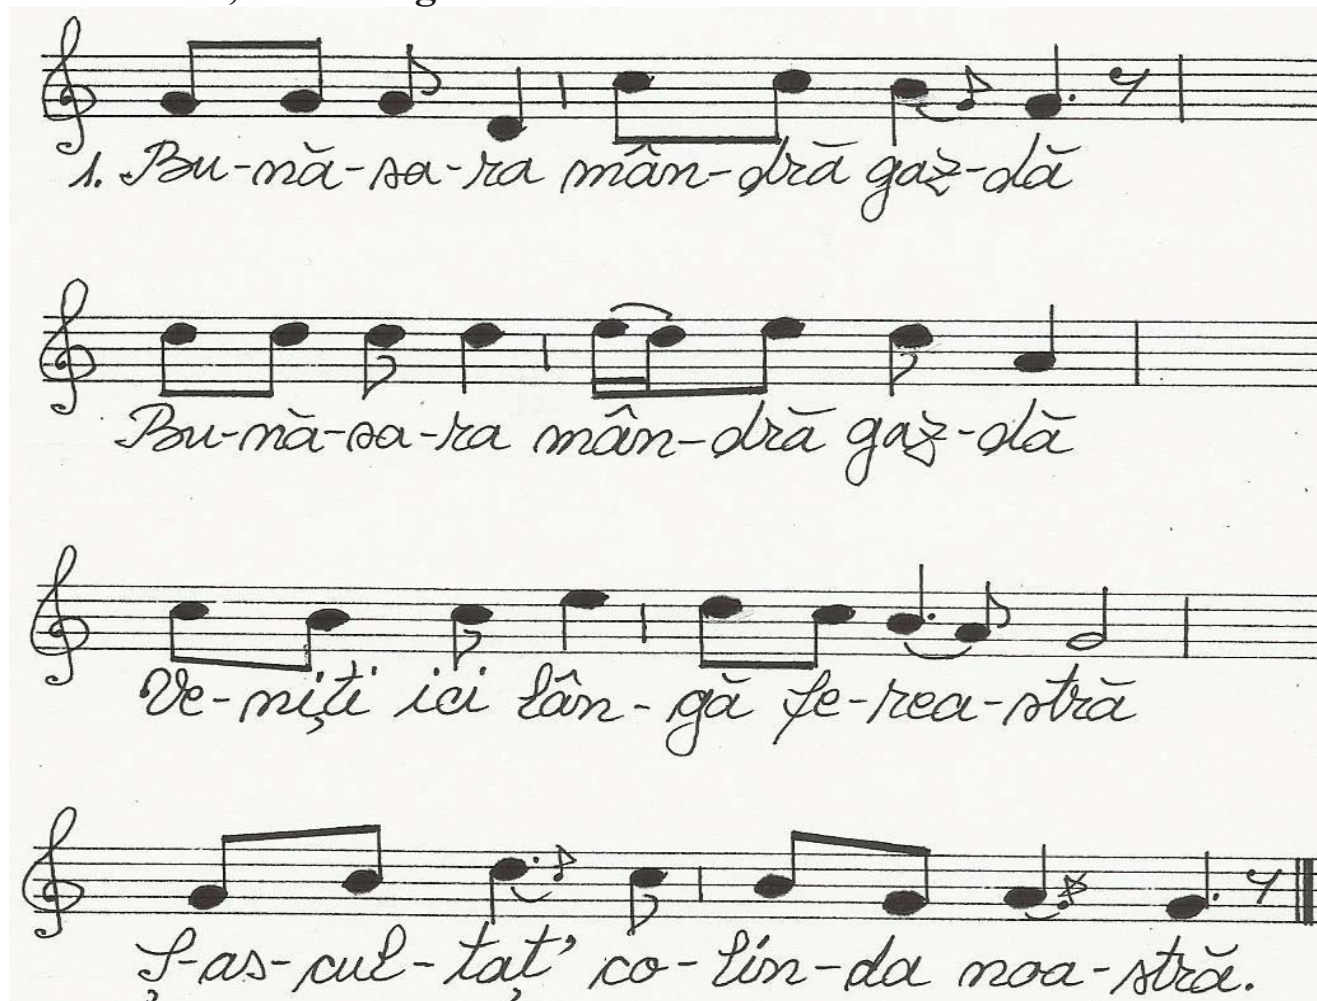 1. Bu-nă-sa-ra mân-dră gaz-dă
Bu-nă-sa-ra mân-dră gaz-dă
Ve-niți ici lân-gă fe-rea-stră
Ș-as-cul-taț' co-lin-da noa-stră.